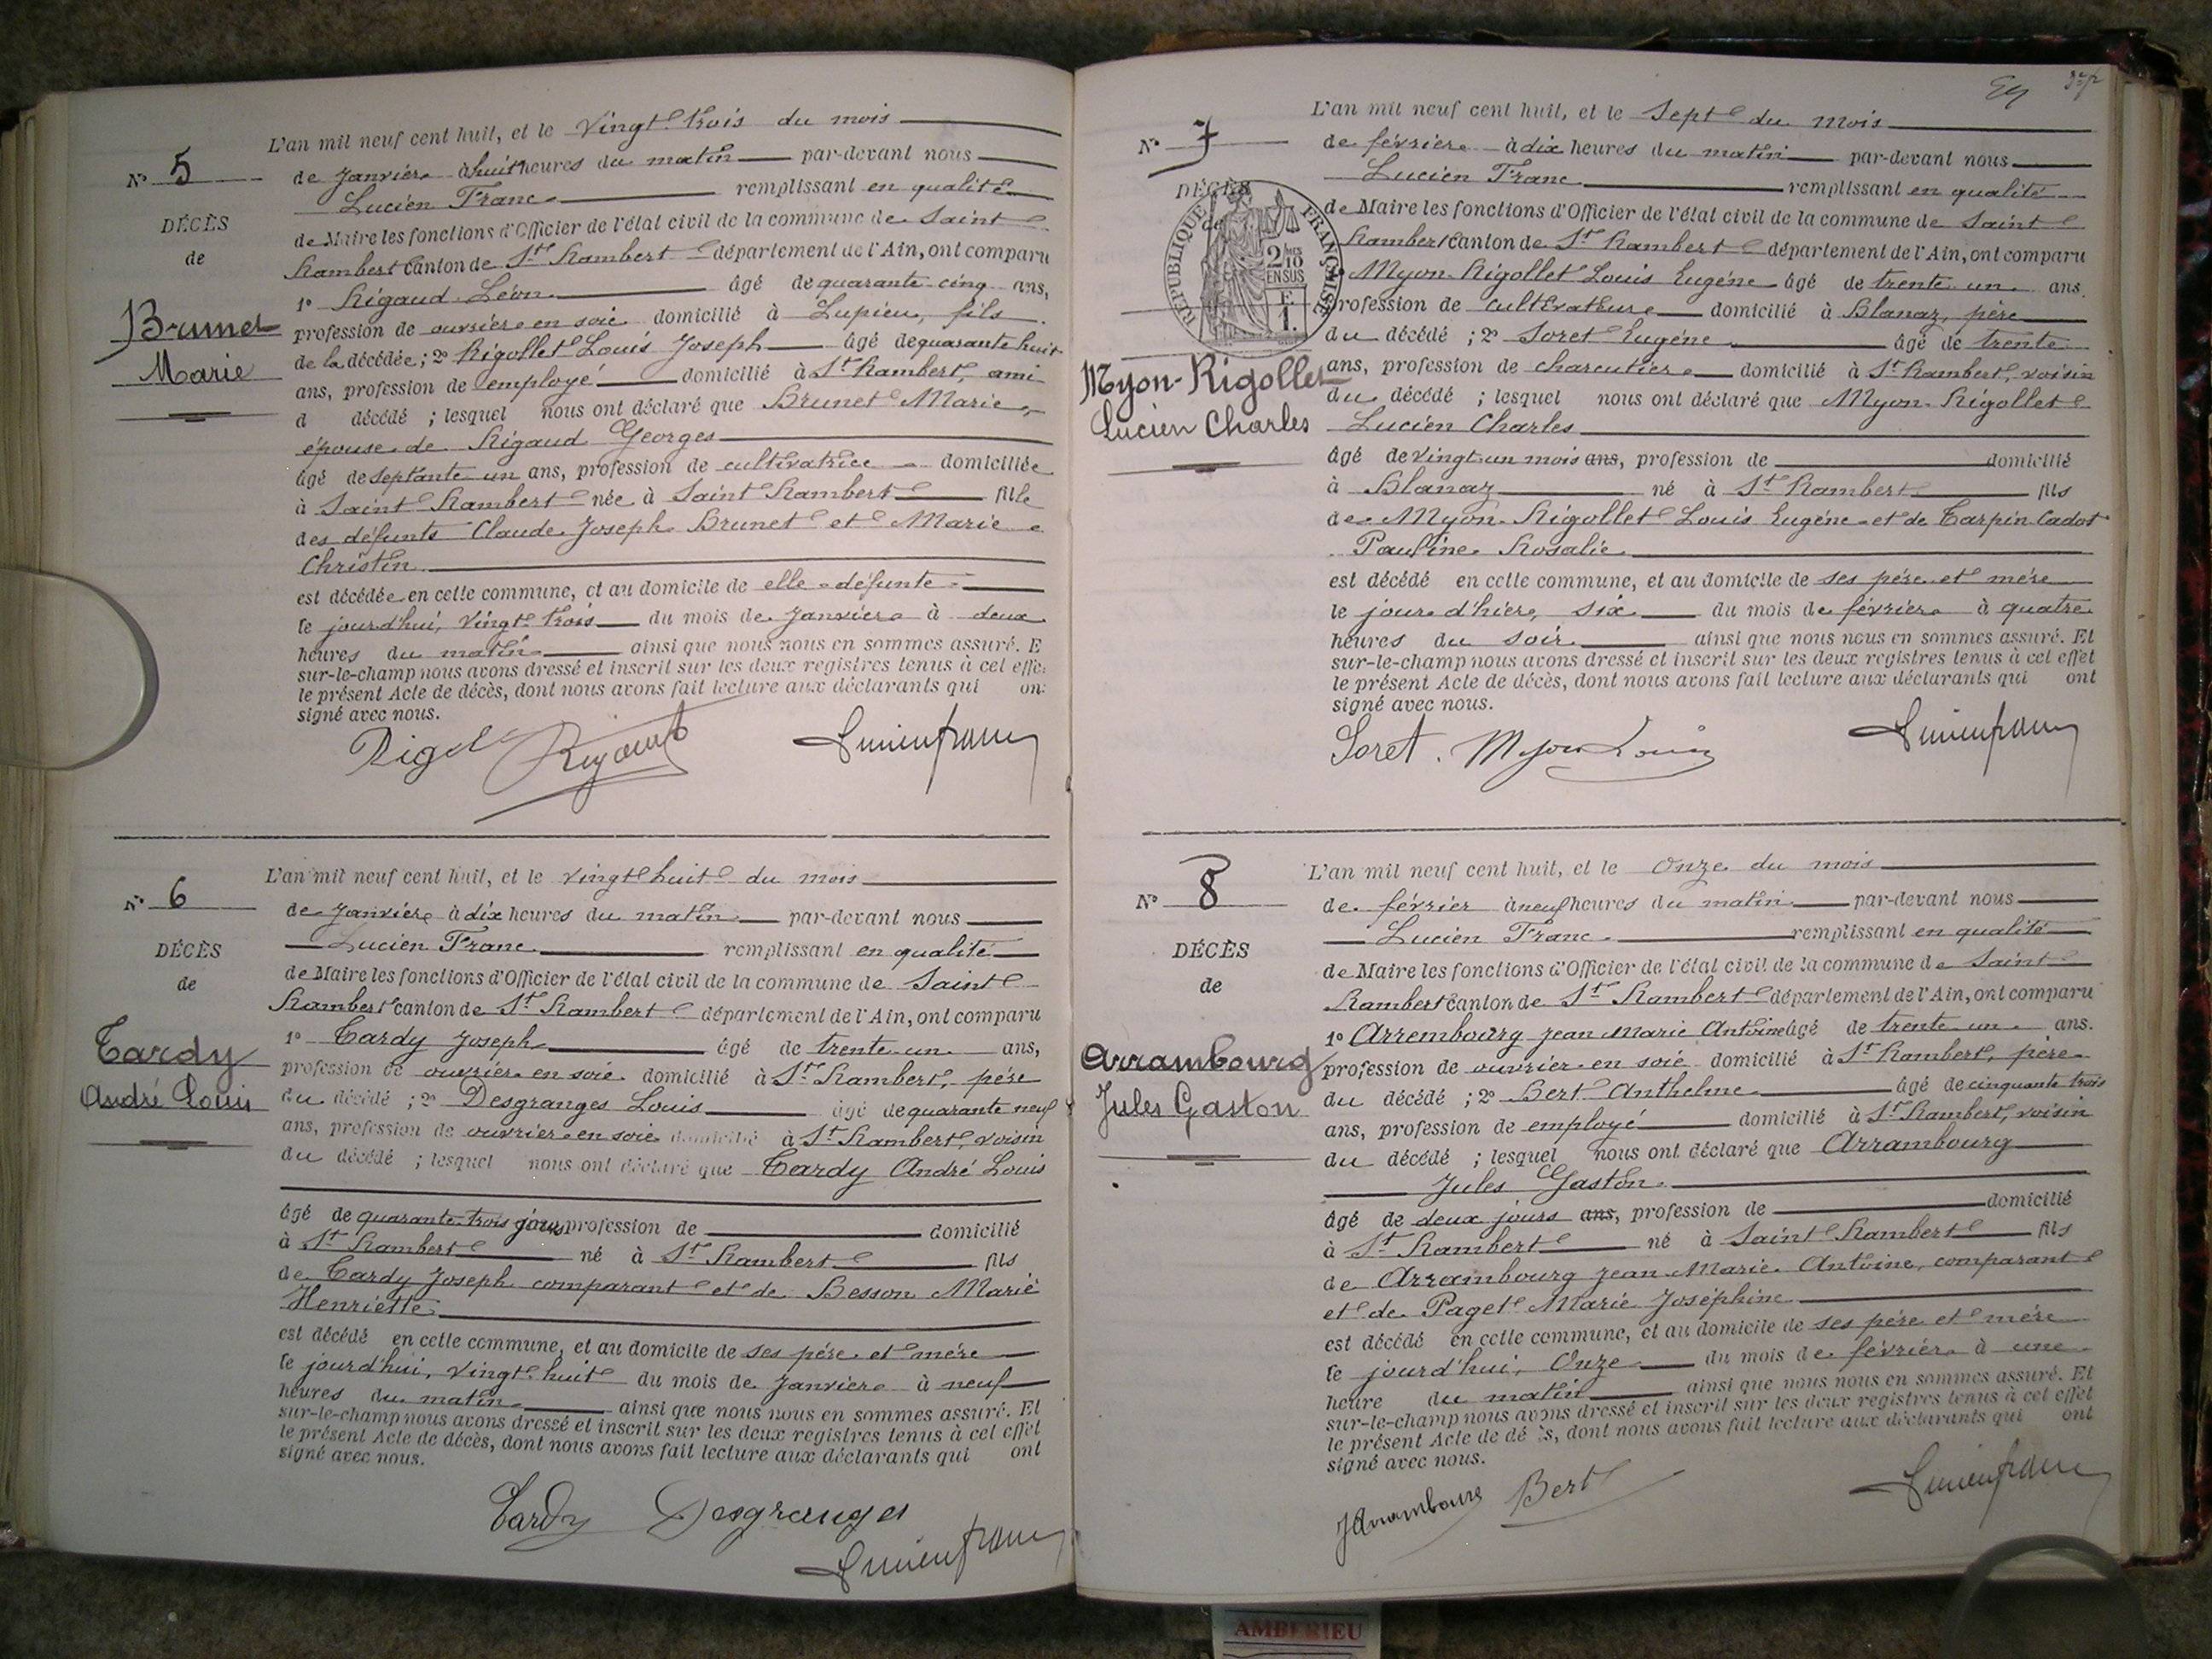 L'an mil neuf cent huit, et le vingt trois du mois
N° 5
de Janvier à huit heures du matin par-devant nous
Lucien Franc remplissant en qualité
DÉCÈS
de Maire les fonctions d'Officier de l'état civil de la commune de Saint
de
Rambert canton de St Rambert département de l'Ain, ont comparu
1° Rigaud Léon âgé de quarante cinq ans,
Brunet
profession de ouvrier en soie domicilié à Lupieu, fils
de la décédée ; 2° Rigollet Louis Joseph âgé de quarante huit
Marie
ans, profession de employé domicilié à St Rambert, ami
d décédé ; lesquel nous ont déclaré que Brunet Marie,
épouse de Rigaud Georges
âgé de septante un ans, profession de cultivatrice domiciliée
à Saint Rambert née à Saint Rambert fille
des défunts Claude Joseph Brunet et Marie
Christin
est décédée en cette commune, et au domicile de elle défunte
le jourd'hui, vingt trois du mois de Janvier à deux
heures du matin ainsi que nous nous en sommes assuré. E
sur-le-champ nous avons dressé et inscrit sur les deux registres tenus à cet effe
le présent Acte de décès, dont nous avons fait lecture aux déclarants qui on
signé avec nous.
Rigaud Lucien Franc
L'an mil neuf cent huit, et le vingt huit du mois
N° 6
de Janvier à dix heures du matin par-devant nous
Lucien Franc remplissant en qualité
DÉCÈS
de Maire les fonctions d'Officier de l'état civil de la commune de Saint
de
Rambert canton de St Rambert département de l'Ain, ont comparu
1° Tardy Joseph âgé de trente un ans,
Tardy
profession de ouvrier en soie domicilié à St Rambert, père
André Louis
du décédé ; 2° Desgranges Louis âgé de quarante neuf
ans, profession de ouvrier en soie domicilié à St Rambert, voisin
du décédé ; lesquel nous ont déclaré que Tardy André Louis
âgé de quarante trois jours profession de domicilié
à St Rambert né à St Rambert fils
de Tardy Joseph comparant et de Besson Marie
Henriette
est décédé en cette commune, et au domicile de ses père et mère
le jourd'hui, vingt huit du mois de Janvier à neuf
heures du matin ainsi que nous nous en sommes assuré. Et
sur-le-champ nous avons dressé et inscrit sur les deux registres tenus à cet effet
le présent Acte de décès, dont nous avons fait lecture aux déclarants qui ont
signé avec nous.
Tardy Desgranges
Lucien Franc
L'an mil neuf cent huit, et le Sept du mois
N° 7
de février à dix heures du matin par-devant nous
Lucien Franc remplissant en qualité
DÉCÈS
de
RÉPUBLIQUE FRANÇAISE
2/10
EN SUS
E
1.
de Maire les fonctions d'Officier de l'état civil de la commune de Saint
Rambert canton de St Rambert département de l'Ain, ont comparu
Myon-Rigollet Louis Eugène âgé de trente un ans.
profession de cultivateur domicilié à Blanaz, père
du décédé ; 2° Soret Eugène âgé de trente
Myon-Rigollet
Lucien Charles
ans, profession de charcutier domicilié à St Rambert, voisin
du décédé ; lesquel nous ont déclaré que Myon-Rigollet
Lucien Charles
âgé de vingt un mois ans, profession de domicilié
à Blanaz né à St Rambert fils
de Myon-Rigollet Louis Eugène et de Tarpin Cadot
Pauline Rosalie
est décédé en cette commune, et au domicile de ses père et mère
le jour d'hier, six du mois de février à quatre
heures du soir ainsi que nous nous en sommes assuré. Et
sur-le-champ nous avons dressé et inscrit sur les deux registres tenus à cet effet
le présent Acte de décès, dont nous avons fait lecture aux déclarants qui ont
signé avec nous.
Soret. Myon Louis Lucien Franc
L'an mil neuf cent huit, et le Onze du mois
N° 8
de février à neuf heures du matin par-devant nous
Lucien Franc remplissant en qualité
DÉCÈS
de Maire les fonctions d'Officier de l'état civil de la commune de Saint
de
Rambert canton de St Rambert département de l'Ain, ont comparu
1° Arrembourg Jean Marie Antoine âgé de trente un ans.
Arrambourg
profession de ouvrier en soie domicilié à St Rambert, père
Jules Gaston
du décédé ; 2° Bert Anthelme âgé de cinquante trois
ans, profession de employé domicilié à St Rambert, voisin
du décédé ; lesquel nous ont déclaré que Arrambourg
Jules Gaston
âgé de deux jours ans, profession de domicilié
à St Rambert né à Saint Rambert fils
de Arrambourg Jean Marie Antoine, comparant
et de Paget Marie Joséphine
est décédé en cette commune, et au domicile de ses père et mère
le jourd'hui, Onze du mois de février à une
heure du matin ainsi que nous nous en sommes assuré. Et
sur-le-champ nous avons dressé et inscrit sur les deux registres tenus à cet effet
le présent Acte de dé s, dont nous avons fait lecture aux déclarants qui ont
signé avec nous.
JArrambourg Bert Lucien Franc
AMBERIEU